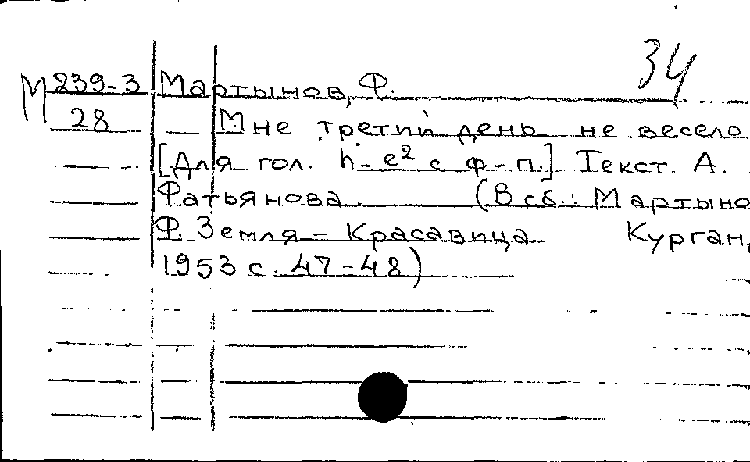 34
М 239-3 Мартынов, Ф.
28 Мне третий день не весело
[Для гол. h - e² с ф-п.] Текст. А.
Фатьянова (В сб.: Мартыно
Ф. Земля - красавица Курган,
1953 с. 47-48)